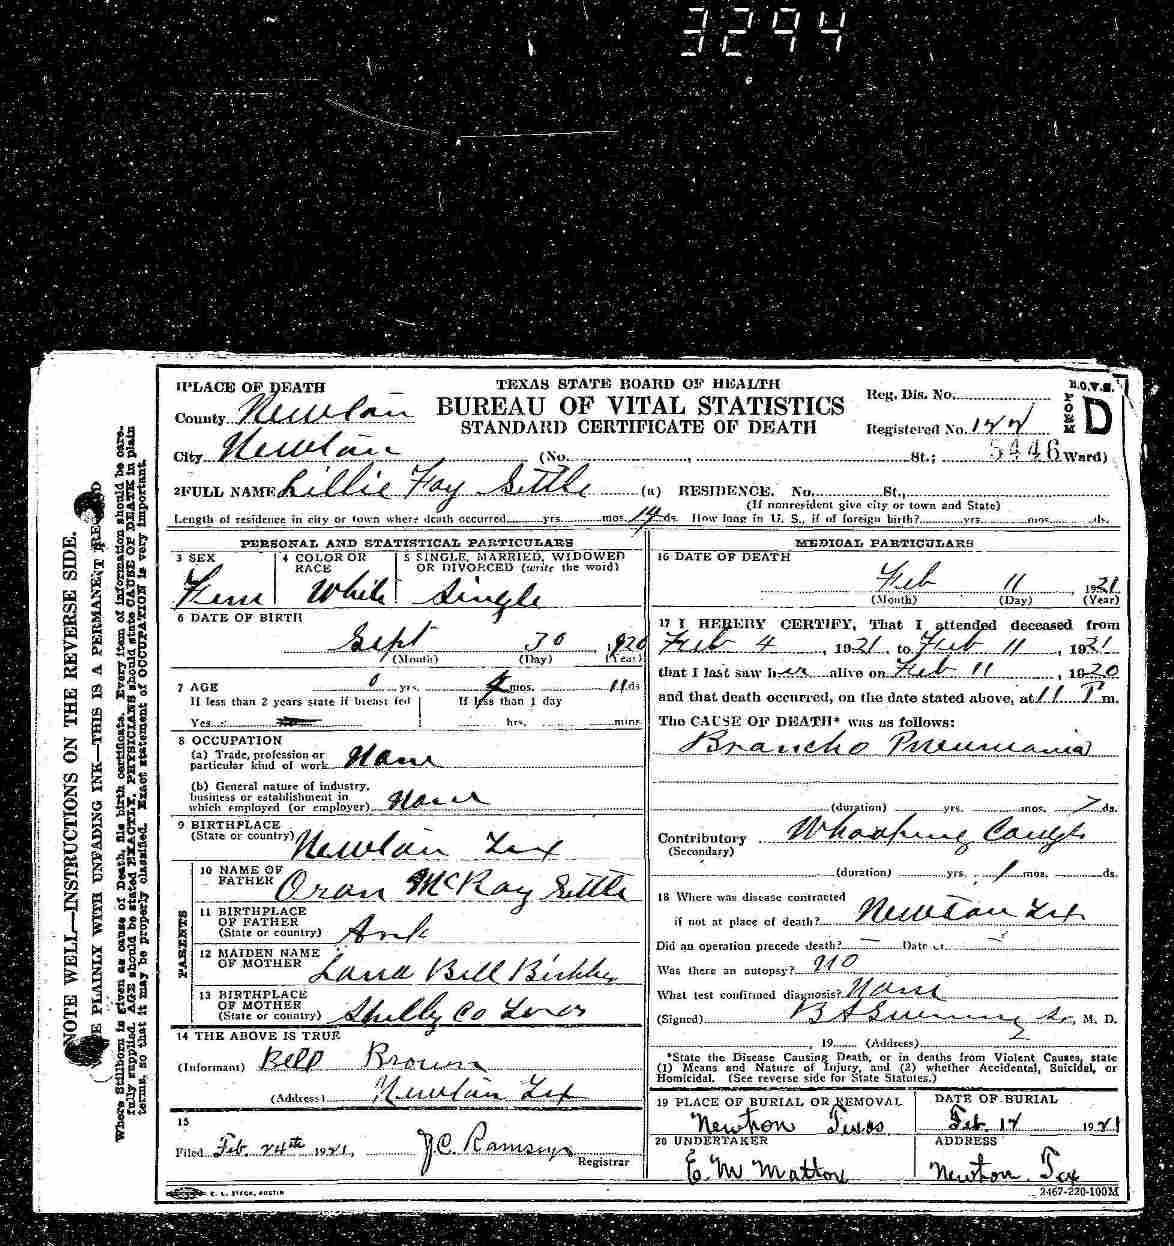 3294
1 PLACE OF DEATH
TEXAS STATE BOARD OF HEALTH
BUREAU OF VITAL STATISTICS
STANDARD CERTIFICATE OF DEATH
Reg. Dis. No.
B.O.V.S.
FORM D
County Newton
Registered No.
City Newton (No. , St.; 5446 Ward)
2 FULL NAME Lillie Fay Settle (a) RESIDENCE. No. St.,
(If nonresident give city or town and State)
Length of residence in city or town where death occurred yrs. mos. 14 ds. How long in U. S., if of foreign birth? yrs. mos. ds.
PERSONAL AND STATISTICAL PARTICULARS
3 SEX Fem
4 COLOR OR RACE White
5 SINGLE, MARRIED, WIDOWED
OR DIVORCED (write the word) Single
6 DATE OF BIRTH
Sept 30 1920
(Month) (Day) (Year)
7 AGE 0 yrs. 4 mos. 11 ds
If less than 2 years state if breast fed If less than 1 day
Yes hrs. mins
8 OCCUPATION
(a) Trade, profession or
particular kind of work None
(b) General nature of industry,
business or establishment in
which employed (or employer) None
9 BIRTHPLACE
(State or country) Newton Tex
PARENTS
10 NAME OF
FATHER Oran McKay Settle
11 BIRTHPLACE
OF FATHER
(State or country) Ark
12 MAIDEN NAME
OF MOTHER Bell
13 BIRTHPLACE
OF MOTHER
(State or country) Shelby Co Texas
14 THE ABOVE IS TRUE
(Informant) Bell Brown
(Address) Newton Tex
15
Filed Feb. 24th 1921, J.C. Ramsey
Registrar
MEDICAL PARTICULARS
16 DATE OF DEATH
Feb 11 1921
(Month) (Day) (Year)
17 I HEREBY CERTIFY, That I attended deceased from
Feb 4, 1921, to Feb 11, 1921
that I last saw her alive on Feb 11, 1920
and that death occurred, on the date stated above, at 11 P m.
The CAUSE OF DEATH* was as follows:
Broncho Pneumonia
(duration) yrs. mos. 7 ds.
Contributory Whooping Cough
(Secondary)
(duration) yrs. 1 mos. ds.
18 Where was disease contracted
if not at place of death? Newton Tex
Did an operation precede death? – Date of
Was there an autopsy? no
What test confirmed diagnosis? None
(Signed) Sr, M. D.
, 19 (Address)
*State the Disease Causing Death, or in deaths from Violent Causes, state
(1) Means and Nature of Injury, and (2) whether Accidental, Suicidal, or
Homicidal. (See reverse side for State Statutes.)
19 PLACE OF BURIAL OR REMOVAL
Newton Texas
DATE OF BURIAL
Feb. 12 1921
20 UNDERTAKER
E. M. Mattox
ADDRESS
Newton. Tex
E. L. STECK, AUSTIN
2467-220-100M
NOTE WELL—INSTRUCTIONS ON THE REVERSE SIDE.
PLAINLY WITH UNFADING INK—THIS IS A PERMANENT
Where Stillborn is given as cause of Death, file birth certificate. Every item of information should be care-
fully supplied. AGE should be stated EXACTLY. PHYSICIANS should state CAUSE OF DEATH in plain
terms, so that it may be properly classified. Exact statement of OCCUPATION is very important.